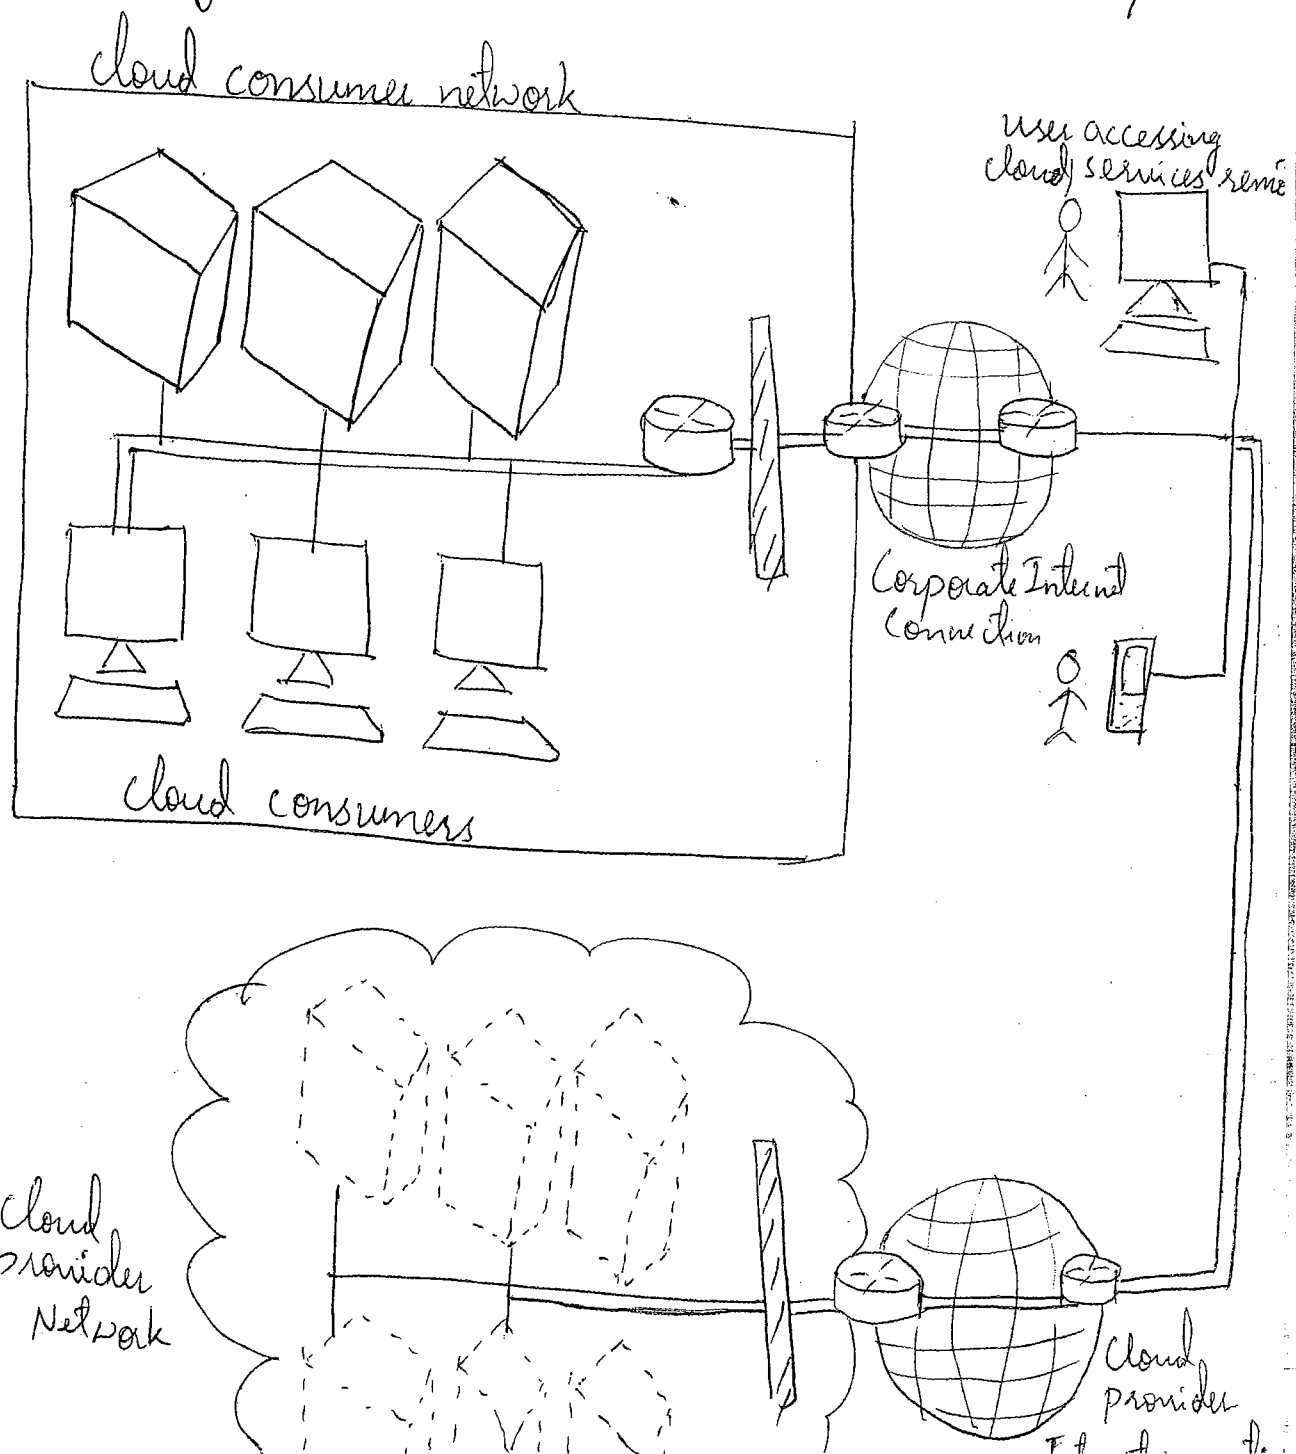 Cloud consumer network
User accessing
cloud services
Corporate Internet
Connection
Cloud consumers
Cloud
provider
Network
Cloud
provider